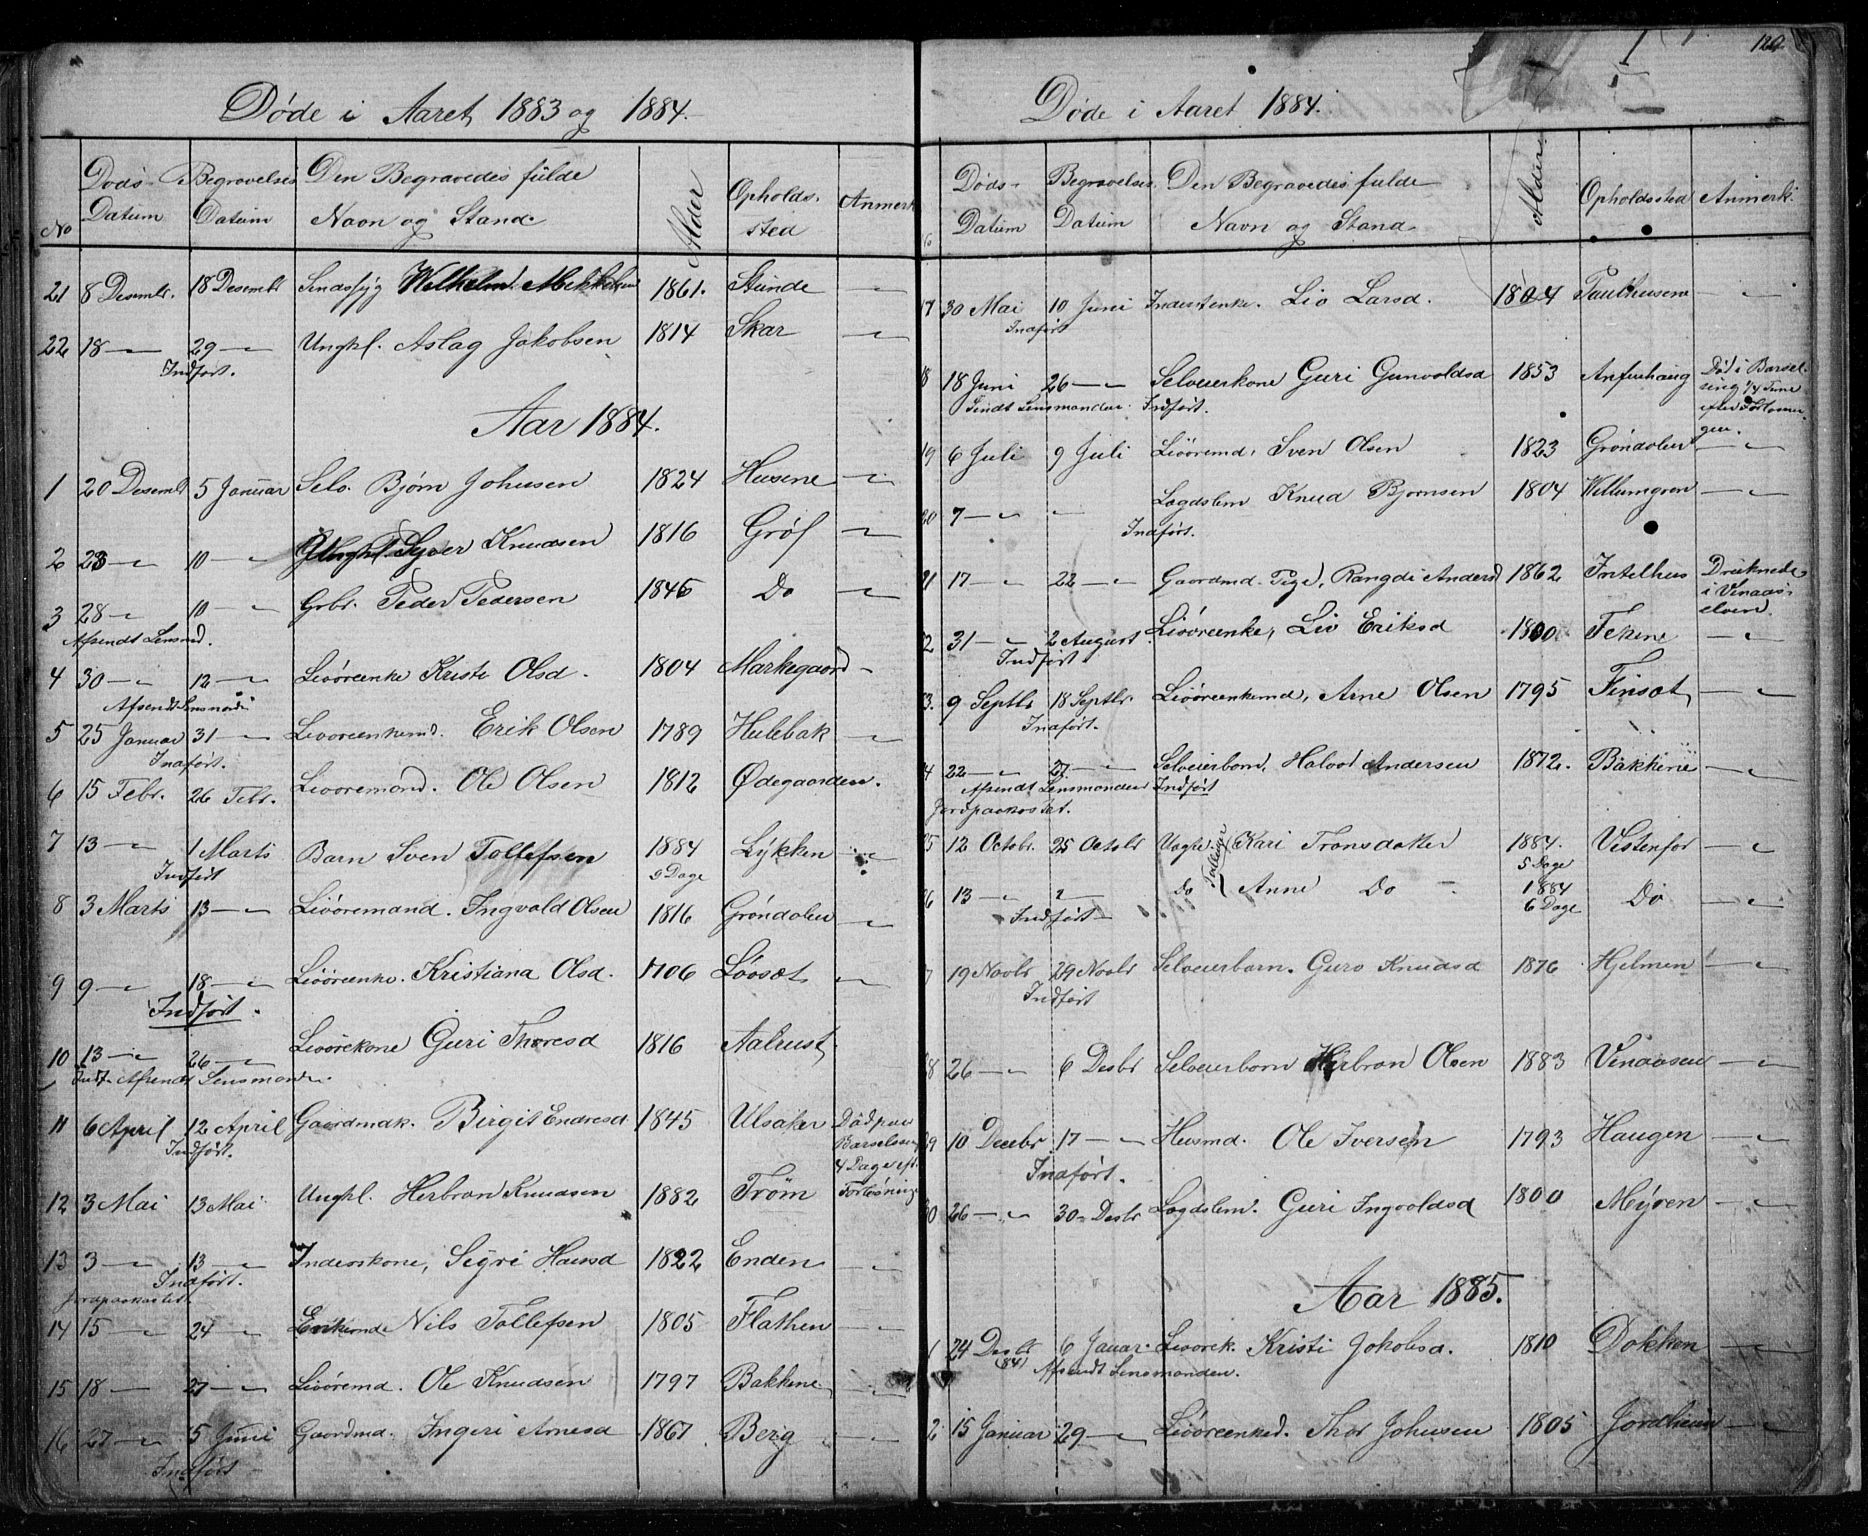 Døde i Aaret 1883 og 1884.
No Døds-Datum Begravelses Datum Den Begravedes fulde Navn og Stand Alder Opholds-sted Anmerk
21 8 Desembr. 18 Desembr Sindssyg Wilhelm Mikkelsen 1861. Stunde —"—
22 18 —"— 29 —"— Unghl. Aslag Jakobsen 1814 Skar —"—
Indført.
Aar 1884.
1 20 Desembr 5 Januar Selv. Bjørn Johnsen 1824 Husene —"—
2 23 —"— 10 —"— Unghl. Syver Knudsen 1816 Grøf —"—
3 28 —"— 10 —"— Grbr. Peder Pedersen 1846 Do —"—
Afsendt Lensmd.
4 30 —"— 12 —"— Livøreenke Kristi Olsd. 1804 Markegaard —"—
Afsendt Lensmand
5 25 Januar 31 —"— Livøreenkemd. Erik Olsen 1789 Hulebak —"—
Indført.
6 15 Febr. 26 Febr. Livøremand. Ole Olsen 1812 Ødegaarden.
7 13 —"— 1 Marts Barn Sven Tollefsen 1884 Lykken —"—
Indført 9 Dage
8 3 Marts 13 —"— Livøremand. Ingvald Olsen 1816 Grøndalen —"—
9 9 —"— 18 —"— Livøreenke. Kristiana Olsd. 1706 Løvset —"—
Indført.
10 13 —"— 26 —"— Livørekone Guri Thoresd 1816 Aalrust.
Indt. Afsendt Lensmanden.
11 6 April 12 April Gaardmak. Birgit Endresd 1845 Ulsaker Død paa Barselseng 4 Dage eft. Forløsning
Indført.
12 3 Mai 13 Mai Unghl. Herbran Knudsen 1882 Trøm
13 3 —"— 13 —"— Inderstkone, Sigri Hansd 1822 Enden —"—
Indført.
Jordpaakastet.
14 15 —"— 24 —"— Enkemd Nils Tollefsen 1805 Flathen —"—
15 18 —"— 27 —"— Livøremd. Ole Knudsen 1797 Bakkene —"—
16 27 —"— 5 Juni Gaardmd. Ingeri Arnesd 1867 Berg —"—
Indført
129.
Døde i Aaret 1884.
Døds-Datum Begravelses Datum Den Begravedes fulde Navn og Stand Alder Opholdssted Anmerk.
17 30 Mai 10 Juni Inderstenke. Liv Larsd. 1804 Paulhusene —"—
Indført
18 18 Juni 26 —"— Selveierkone Guri Gunvoldsd 1853 Anfinhaug Død i Barselseng 1/4 Time efter Forløsningen.
Sendt Lensmanden. Indført.
19 6 Juli 9 Juli Livøremd. Sven Olsen 1823 Grøndalen —"—
20 7 —"— —"— Lægdslem Knud Bjørnsen 1804 Villumgren —"—
Indført.
21 17 —"— 22 —"— Gaardmd. Pige, Rangdi Andersd 1862 Intelhus Druknede i Vinaaselven.
22 31 —"— 2 August. Livøreenke, Liv Eriksd 1800 Tekene —"—
Indført.
23. 9 Septbr 18 Septbr. Livøreenkemd, Arne Olsen 1795 Finset —"—
Indført.
24 22 —"— 27 —"— Selveierbarn, Halvor Andersen 1872. Bakkene —"—
Afsendt Lensmanden Indført
Jordpaakastet.
25 12 Octobr. 25 Octobr Uægte Tvillinger Kari Tronsdatter 1884. Vestenfor —"—
5 Dage
26 13 —"— —"— Do Anne Do 1884 Do —"—
Indført 6 Dage
27 19 Novbr 29 Novbr Selveierbarn. Guro Knudsd 1876 Hjelmen —"—
Indført
28 26 —"— 6 Desbr Selveierbarn Herbran Olsen 1883 Vinaasen —"—
29 10 Decebr 17 —"— Husmd. Ole Iversen 1793 Haugen —"—
Indført.
30 26 —"— 30 Desbr Lægdslem. Guri Ingvoldsd 1800 Myren —"—
Aar 1885.
1 24 Desbr (84) 6 Januar. Livørek. Kristi Jakobsd. 1810 Dokken —"—
Afsendt Lensmanden.
2 15 Januar 29 —"— Livøreenkmd. Thor Johnsen 1805 Jordheim —"—